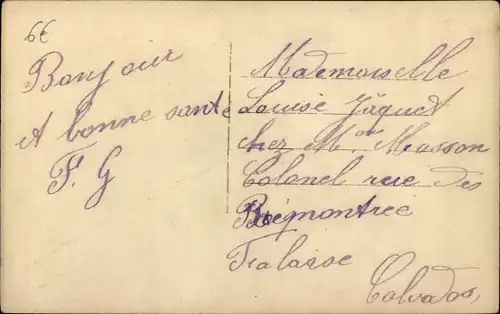 6€
Bonjour
et bonne santé
F. G
Mademoiselle
Louise Jäquet
chez M. Masson
Colonel rue des
Falaise
Calvados,